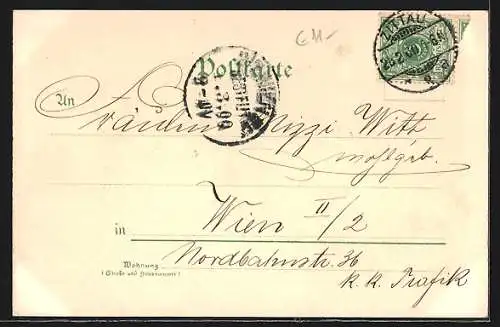 CM-
ZITTAU
Postkarte
An
Fräulein Mizzi Witt
Wohlgeb.
in Wien II/2
Wohnung
(Straße und Hausnummer)
Nordbahnstr. 36
k. k. Trafik